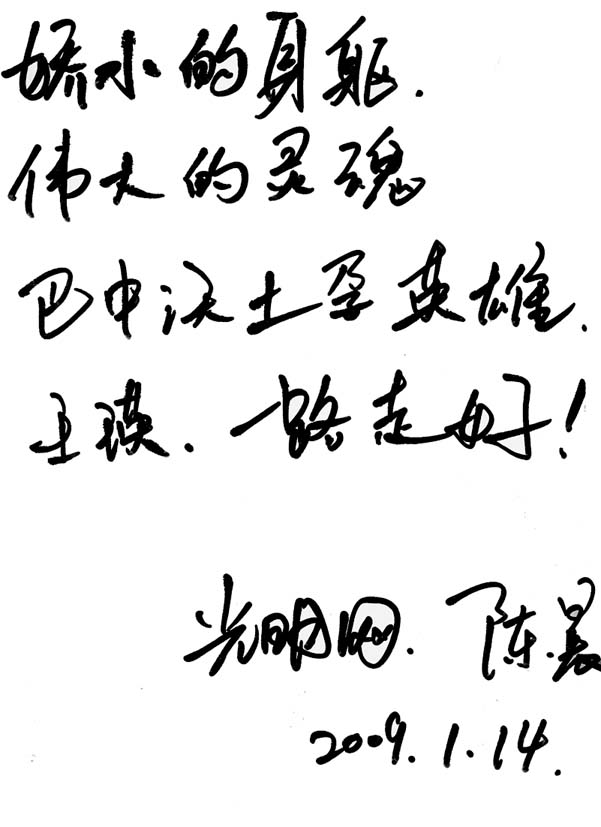 娇小的身躯.
伟大的灵魂
巴中沃土孕英雄.
王瑛.一路走好!
光明网.陈晨
2009.1.14.